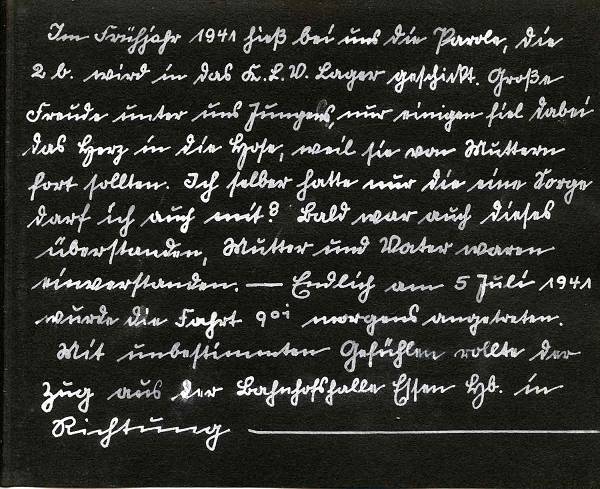 Im Frühjahr 1941 hieß bei uns die Parole, die
2 b. wird in das K.L.V. Lager geschickt. Große
Freude unter uns Jungens, nur einigen fiel dabei
das Herz in die Hose, weil sie von Muttern
fort sollten. Ich selber hatte nur die eine Sorge
darf ich auch mit? Bald war auch dieses
überstanden, Mutter und Vater waren
einverstanden. — Endlich am 5 Juli 1941
wurde die Fahrt 9⁰¹ morgens angetreten.
Mit unbestimmten Gefühlen rollte der
Zug aus der Bahnhofshalle Essen Hb. in
Richtung —